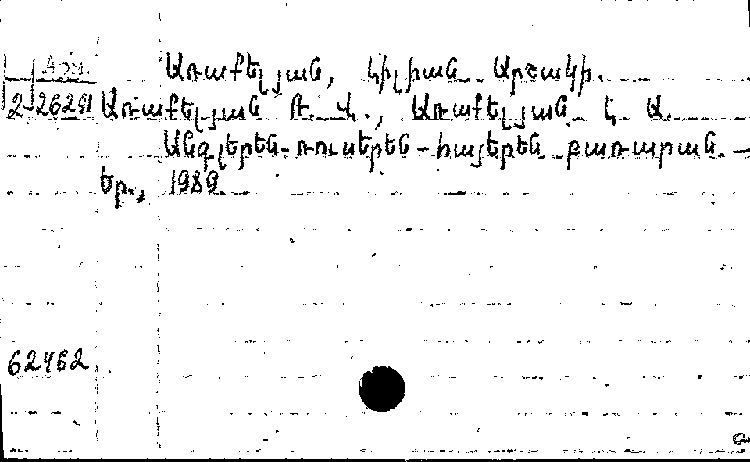 Առաքելյան, Լիլիան Արշակի.
2 26251 Առաքելյան Բ. Վ., Առաքելյան Լ. Ա.
Անգլերեն-ռուսերեն-հայերեն բառարան. —
Եր., 1989
62462